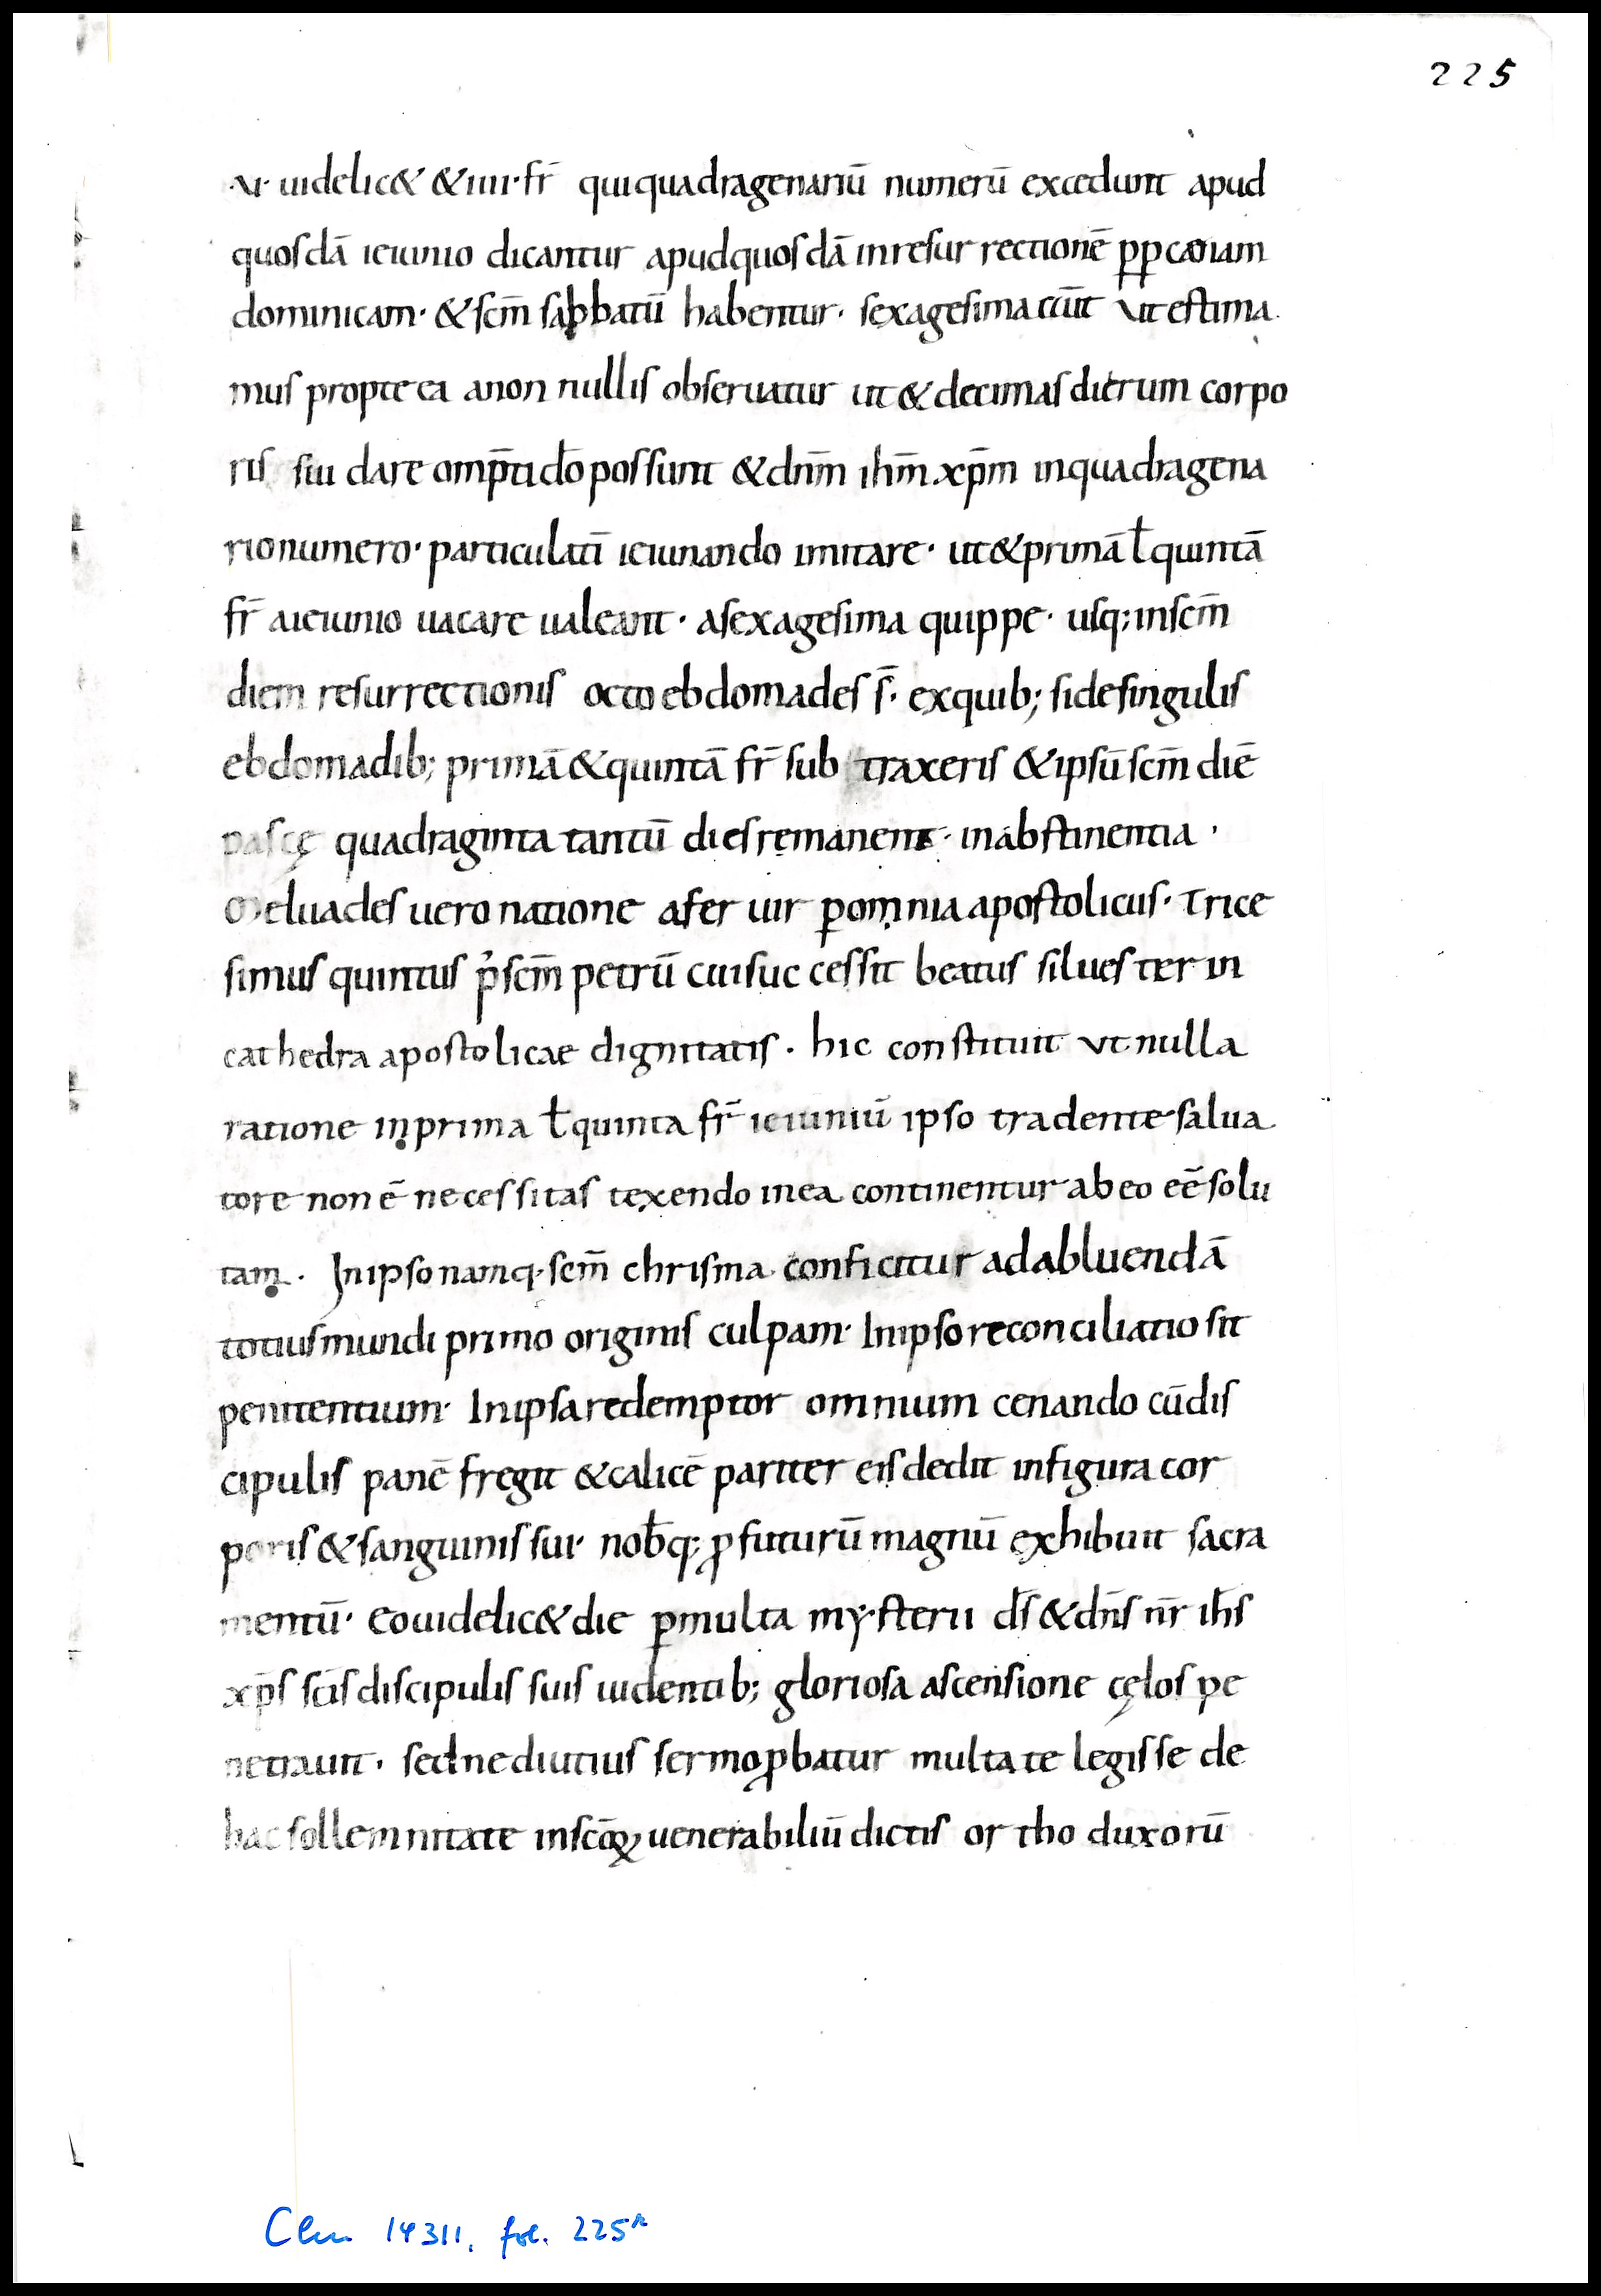 225
·vi· uidelic& & iiii· fr̄ qui quadragenariū numerū excedunt apud
quosdā ieiunio dicantur apud quosdā in resurrectionē ꝑꝑ cænam
dominicam· & scm̄ sabbatū habentur· sexagesima aūt ut estima
mus propterea a non nullis obseruatur ut & decimas dierum corpo
ris sui dare omp̄ti dō possunt & dnm̄ ihm̄ xp̄m in quadragena
rio numero· particulatī ieiunando imitare· ut & primā ł quintā
fr̄ a ieiunio uacare ualeant· a sexagesima quippe· usq; in scm̄
diem resurrectionis octo ebdomades s̄· ex quib; si de singulis
ebdomadib; primā & quintā fr̄ sub traxeris & ipsū scm̄ diē
pascę quadraginta tantū dies remanent· in abstinentia·
Melciades uero natione afer uir ꝑ omnia apostolicus· trice
simus quintus p̓ scm̄ petrū cui succcessit beatus siluester in
cathedra apostolicae dignitatis· hic constituit ut nulla
ratione in prima ł quinta fr̄ ieiuniū ipso tradente salua
tore non ē necessitas texendo in ea continentur ab eo eē solu
tam· In ipso namq· scm̄ chrisma conficitur ad abluendā
totius mundi primo originis culpam· In ipso reconciliatio fit
penitentium· In ipsa redemptor omnium cenando cū dis
cipulis panē fregit & calicē pariter eis dedit in figura cor
poris & sanguinis sui· nob̄q; ꝓfuturū magnū exhibuit sacra
mentū· eo uidelic& die ꝑ multa mysterii ds̄ & dn̄s nr̄ ihs̄
xp̄s scīs discipulis suis uidentib; gloriosa ascensione cęlos pe
netrauit· sed ne diutius sermo ꝓbatur multa te legisse de
hac sollemnitate in scōꝝ uenerabiliū dictis orthoduxorū
Clm 14311, fol. 225r